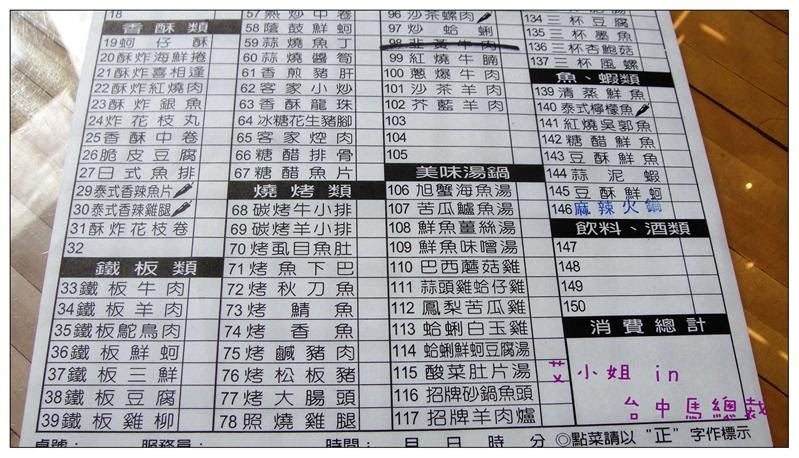 18
香酥類
19蚵仔酥
20酥炸海鮮捲
21酥炸喜相逢
22酥炸紅燒肉
23酥炸銀魚
24炸花枝丸
25香酥中卷
26脆皮豆腐
27日式魚排
29泰式香辣魚片
30泰式香辣雞腿
31酥炸花枝卷
32
鐵板類
33鐵板牛肉
34鐵板羊肉
35鐵板鴕鳥肉
36鐵板鮮蚵
37鐵板三鮮
38鐵板豆腐
39鐵板雞柳
57熱炒中卷
58蔭鼓鮮蚵
59蒜燒魚丁
60蒜燒醬筍
61香煎豬肝
62客家小炒
63香酥龍珠
64冰糖花生豬腳
65客家焢肉
66糖醋排骨
67糖醋魚片
燒烤類
68碳烤牛小排
69碳烤羊小排
70烤虱目魚肚
71烤魚下巴
72烤秋刀魚
73烤鯖魚
74烤香魚
75烤鹹豬肉
76烤松板豬
77烤大腸頭
78照燒雞腿
96沙茶螺肉
97炒蛤蜊
98韭黃牛肉
99紅燒牛腩
100蔥爆牛肉
101沙茶羊肉
102芥藍羊肉
103
104
105
美味湯鍋
106旭蟹海魚湯
107苦瓜鱸魚湯
108鮮魚薑絲湯
109鮮魚味噌湯
110巴西蘑菇雞
111蒜頭雞蛤仔雞
112鳳梨苦瓜雞
113蛤蜊白玉雞
114蛤蜊鮮蚵豆腐湯
115酸菜肚片湯
116招牌砂鍋魚頭
117招牌羊肉爐
134三杯豆腐
135三杯墨魚
136三杯杏鮑菇
137三杯風螺
魚、蝦類
139清蒸鮮魚
140泰式檸檬魚
141紅燒吳郭魚
142糖醋鮮魚
143豆酥鮮魚
144蒜泥蝦
145豆酥鮮蚵
146麻辣火鍋
飲料、酒類
147
148
149
150
消費總計
艾小姐 in
台中馬總裁
桌號： 服務員： 時間： 月 日 時 分 ◎點菜請以"正"字作標示